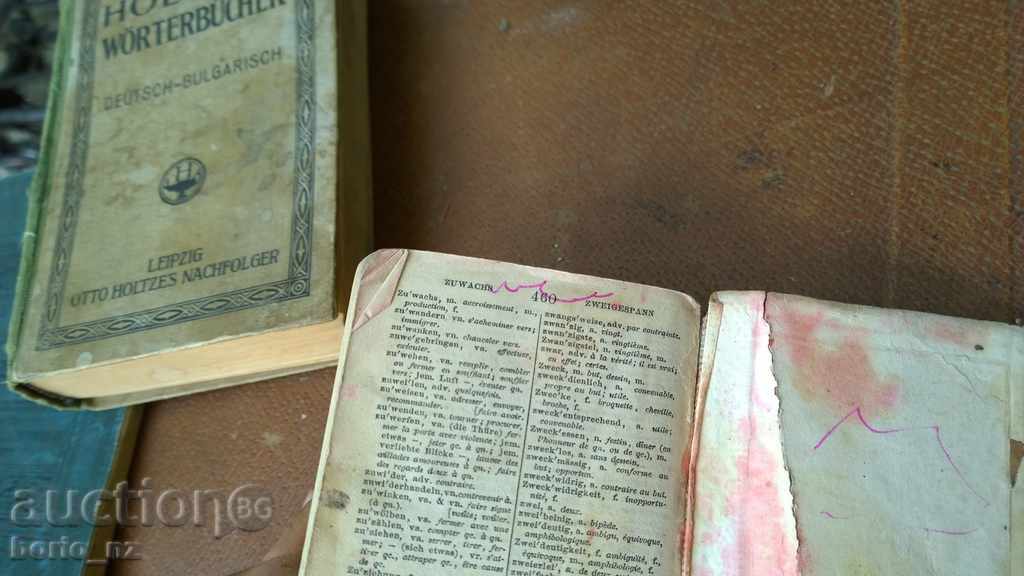 WÖRTERBÜCHER
DEUTSCH-BULGARISCH
LEIPZIG
OTTO HOLTZE'S NACHFOLGER
ZUWACHS
460
ZWEIGESPANN
Zu'wachs, m. accroissement, m.,
production, f.
zu'wandern, vn. s'acheminer vers;
immigrer.
zu'wanken, vn. chanceler vers.
zuwe'gebringen, va. effectuer,
exécuter.
zu'wehen, va. remplir, combler
ou fermer en soufflant; souffler
vers; jem. Luft –, éventer qn.
zuwei'len, ad. quelquefois.
zu'weisen, va. adresser, envoyer,
recommander. [faire avoir.
zu'wenden, va. tourner; procurer,
zu'werfen, va. (die Thüre) fer-
mer la porte avec violence; jem.
etwas –, jeter qc. à qn.; jem.
verliebte Blicke –, lancer des
œillades amoureuses à qn.; faire
des regards doux à qn.
zuwi'der, ad. contraire.
zuwi'derhandeln, vn. contrevenir à.
zu'winken, va. & vn. faire signe
(à qn.). [voûte, voûter.
zu'wölben, va. fermer par une
zu'zählen, va. compter qc. à qn.
zu'ziehen, va. serrer, tirer, fer-
mer; – (sich etwas), vr. s'at-
tirer qc., attraper qc., être cause
zwangs'weise, adv. par contrainte.
zwan'zig, a. vingt.
zwan'zigste, a. vingtième.
Zwan'zigstel, n. vingtième, m.
zwar, adv. à la vérité; il est vrai;
en effet; certes.
Zweck, m. but, dessin, m.
zweck'dienlich, a. convenable,
propre au but; utile.
Zwec'ke, f. broquette, cheville,
broche, f.
zweck'entsprechend, a. utile,
convenable.
Zweck'essen, n. festin, dîner (en
l'honneur de qn. ou de qc.), m.
zweck'los, a. sans dessein.
zweck'mässig, a. conforme au
but; opportun.
zweck'widrig, a. contraire au but.
Zweck'widrigkeit, f. inopportu-
nité, f.
zwei, a. deux.
zwei'beinig, a. bipède.
zwei'deutig, a. ambigu, équivoque,
amphibologique.
Zwei'deutigkeit, f. ambiguité, f.
équivoque, m., amphibologie, f.
zweierlei', a. de deux
auction BG
borio_nz